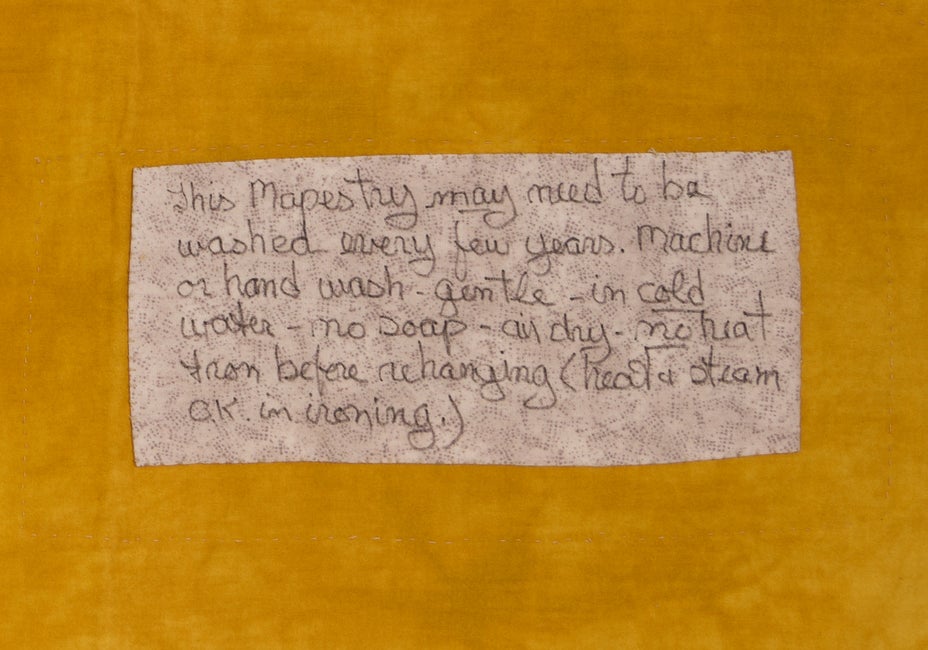 This Mapestry may need to be
washed every few years. Machine
or hand wash - gentle - in cold
water - no soap - air dry - no heat
Iron before rehanging (heat & steam
O.K. in ironing.)